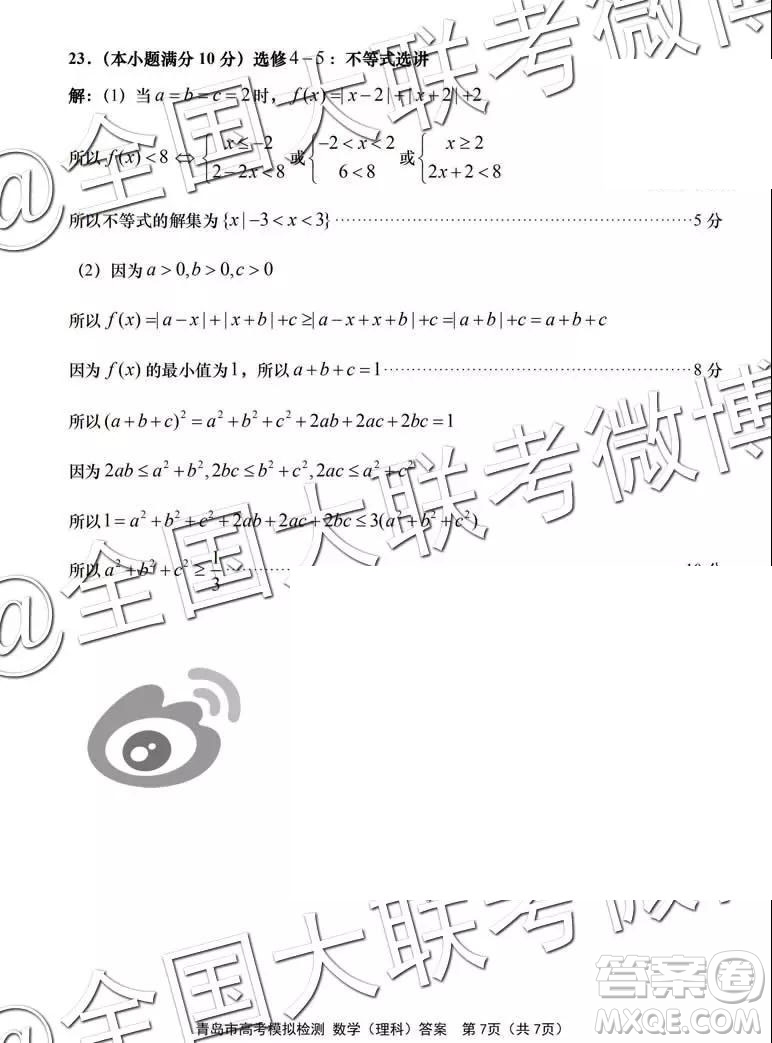 23.（本小题满分 10 分）选修 4－5：不等式选讲
解：(1) 当 a = b = c = 2 时，f(x) =| x − 2 | + | x + 2 | +2
所以 f(x) < 8 ⇔ { x ≤ −2  2 − 2x < 8 或 { −2 < x < 2  6 < 8 或 { x ≥ 2  2x + 2 < 8
所以不等式的解集为 {x | −3 < x < 3} ⋯⋯⋯⋯ 5 分
（2）因为 a > 0, b > 0, c > 0
所以 f(x) =| a − x | + | x + b | +c ≥| a − x + x + b | +c =| a + b | +c = a + b + c
因为 f(x) 的最小值为 1，所以 a + b + c = 1 ⋯⋯⋯⋯ 8 分
所以 (a + b + c)² = a² + b² + c² + 2ab + 2ac + 2bc = 1
因为 2ab ≤ a² + b², 2bc ≤ b² + c², 2ac ≤ a² + c²
所以 1 = a² + b² + c² + 2ab + 2ac + 2bc ≤ 3(a² + b² + c²)
所以 a² + b² + c² ≥ 1/3 ⋯⋯⋯⋯ 10 分
@全国大联考微博
@全国大联考微博
@全国大联考微博
答案卷
MXQE.COM
青岛市高考模拟检测 数学（理科）答案 第 7页（共 7页）